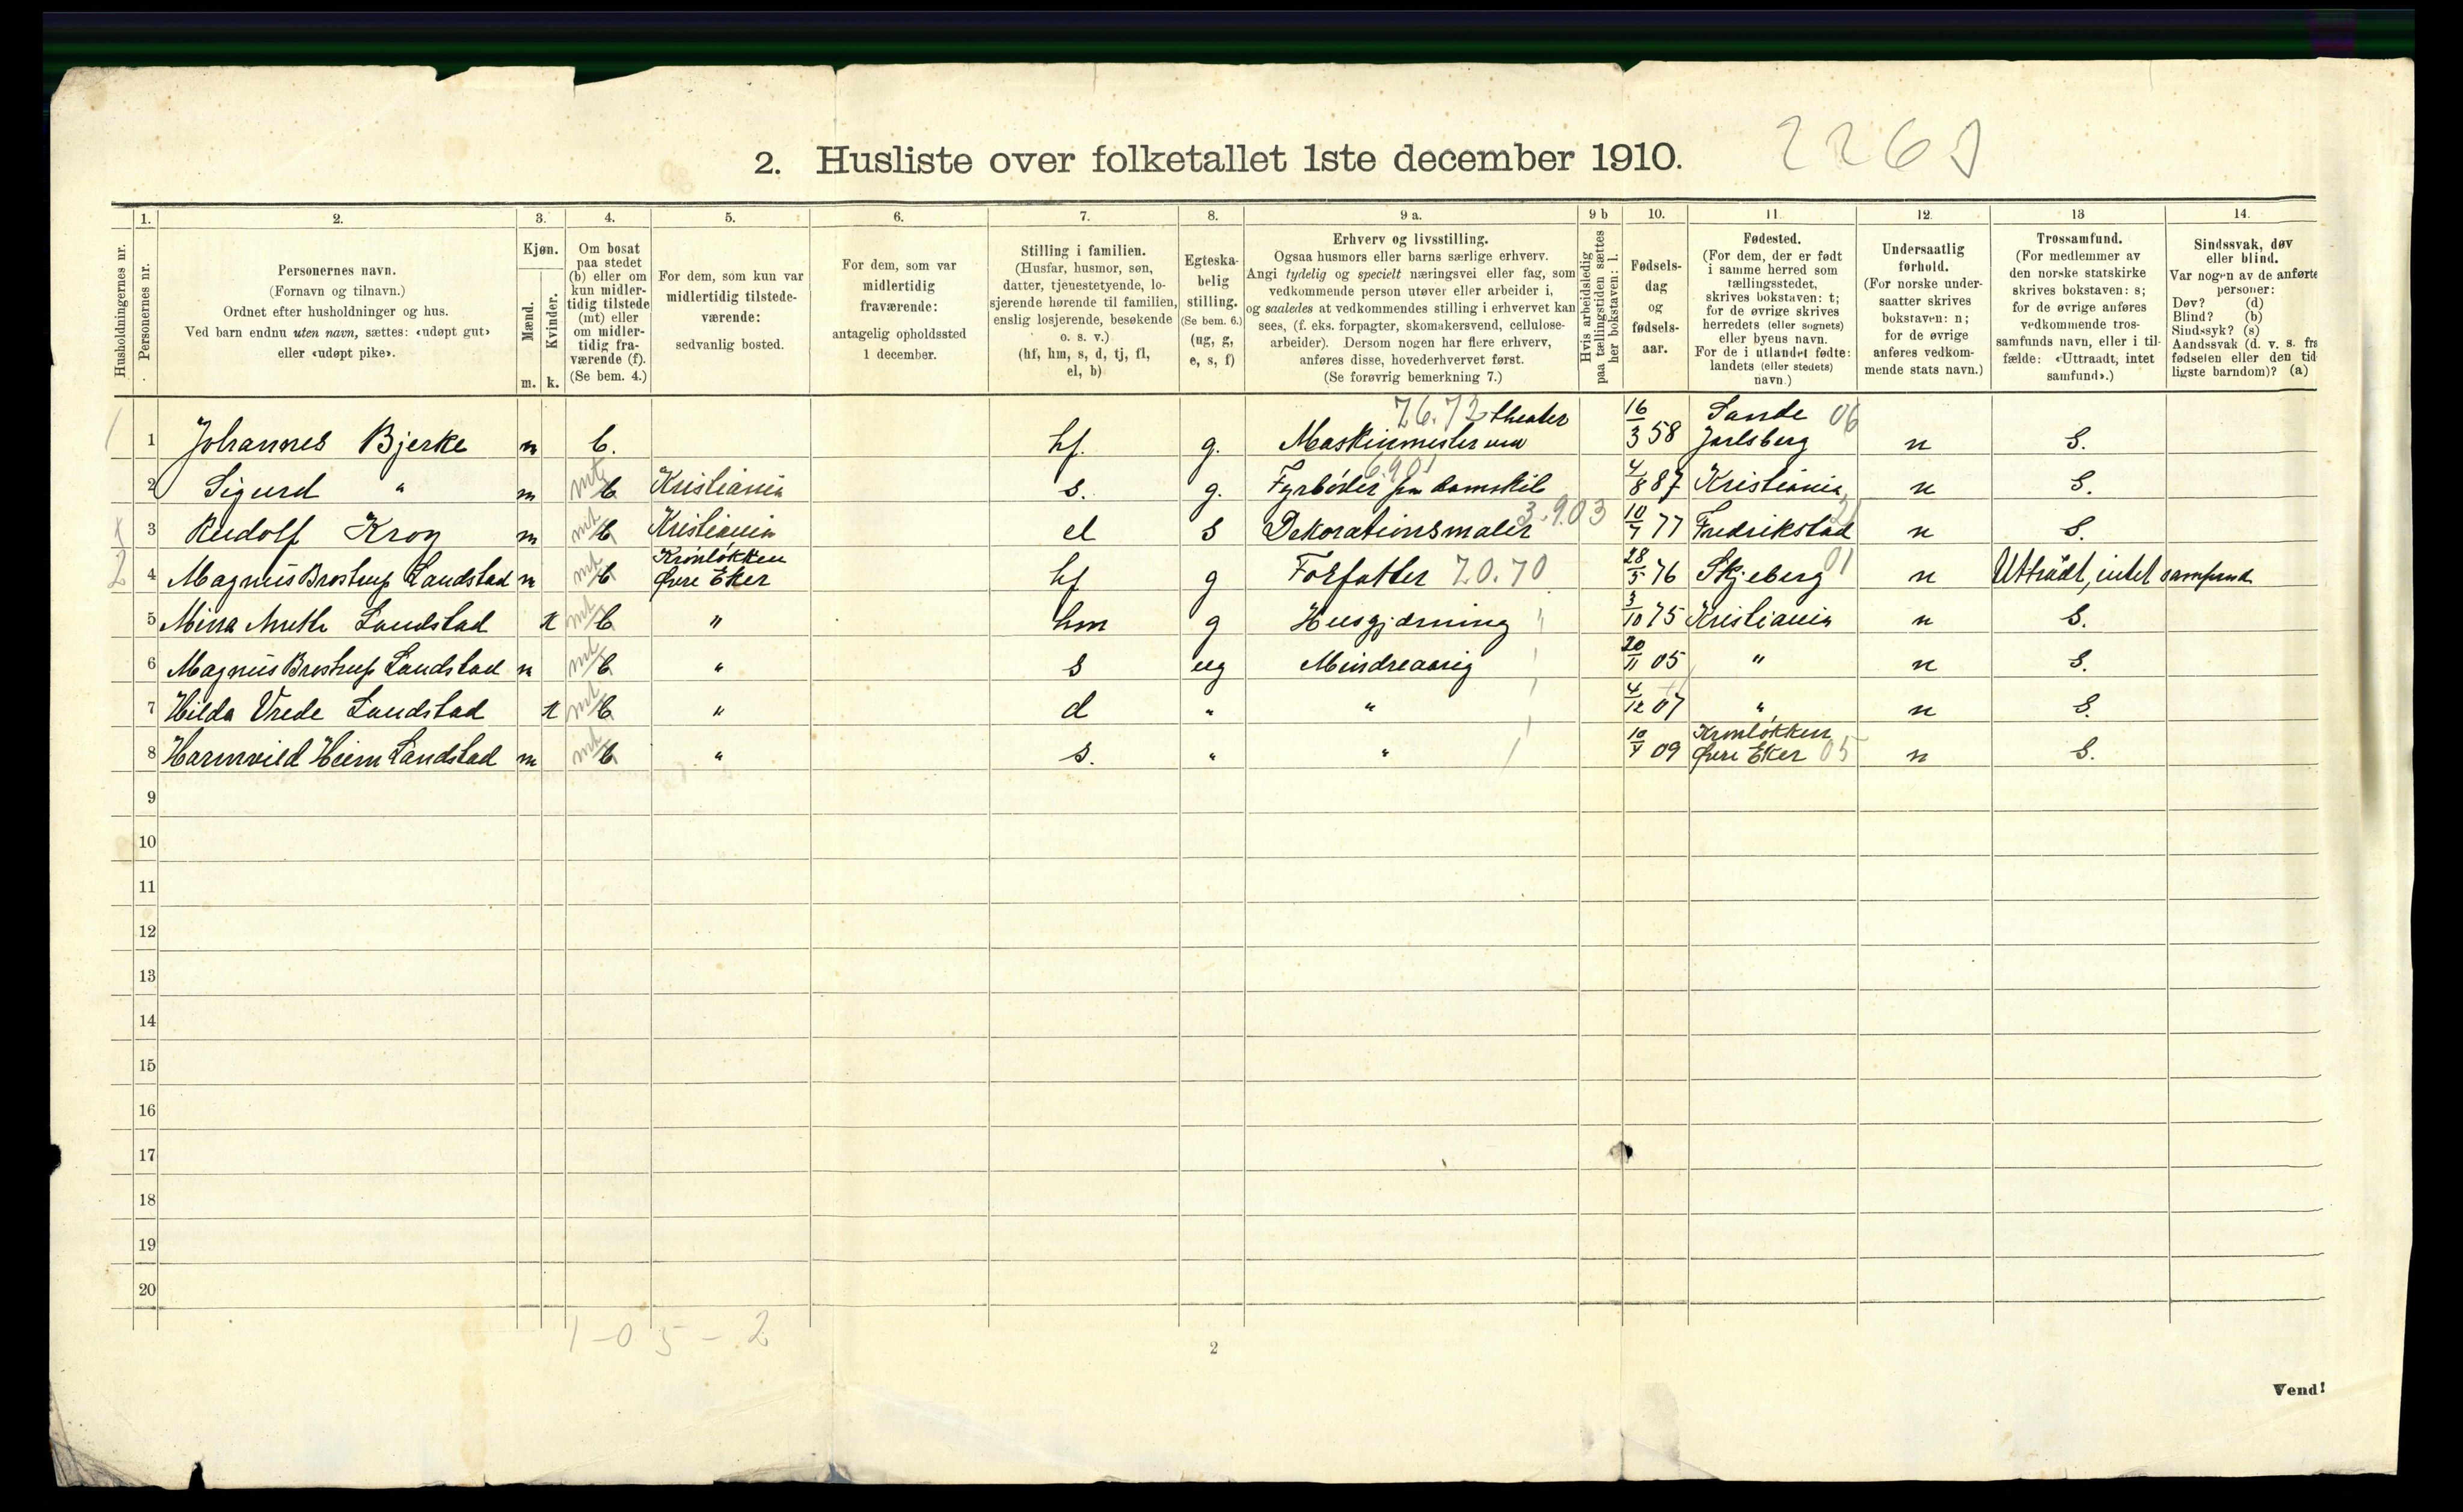 2. Husliste over folketallet 1ste december 1910.
Husholdningernes nr.
1.
Personernes nr.
2.
Personernes navn.
(Fornavn og tilnavn.)
Ordnet efter husholdninger og hus.
Ved barn endnu uten navn, sættes: «udøpt gut»
eller «udøpt pike».
3.
Kjøn.
Mænd.
Kvinder.
m. k.
4.
Om bosat
paa stedet
(b) eller om
kun midler-
tidig tilstede
(mt) eller
om midler-
tidig fra-
værende (f).
(Se bem. 4.)
5.
For dem, som kun var
midlertidig tilstede-
værende:
sedvanlig bosted.
6.
For dem, som var
midlertidig
fraværende:
antagelig opholdssted
1 december.
7.
Stilling i familien.
(Husfar, husmor, søn,
datter, tjenestetyende, lo-
sjerende hørende til familien,
enslig losjerende, besøkende
o. s. v.)
(hf, hm, s, d, tj, fl,
el, b)
8.
Egteska-
belig
stilling.
(Se bem. 6.)
(ug, g,
e, s, f)
9 a.
Erhverv og livsstilling.
Ogsaa husmors eller barns særlige erhverv.
Angi tydelig og specielt næringsvei eller fag, som
vedkommende person utøver eller arbeider i,
og saaledes at vedkommendes stilling i erhvervet kan
sees, (f. eks. forpagter, skomakersvend, cellulose-
arbeider). Dersom nogen har flere erhverv,
anføres disse, hovederhvervet først.
(Se forøvrig bemerkning 7.)
9 b
Hvis arbeidsledig
paa tællingstiden sættes
her bokstaven: l.
10.
Fødsels-
dag
og
fødsels-
aar.
11.
Fødested.
(For dem, der er født
i samme herred som
tællingsstedet,
skrives bokstaven: t;
for de øvrige skrives
herredets (eller sognets)
eller byens navn.
For de i utlandet fødte:
landets (eller stedets)
navn.)
12.
Undersaatlig
forhold.
(For norske under-
saatter skrives
bokstaven: n;
for de øvrige
anføres vedkom-
mende stats navn.)
13
Trossamfund.
(For medlemmer av
den norske statskirke
skrives bokstaven: s;
for de øvrige anføres
vedkommende tros-
samfunds navn, eller i til-
fælde: «Uttraadt, intet
samfund».)
14.
Sindssvak, døv
eller blind.
Var nogen av de anførte
personer:
Døv? (d)
Blind? (b)
Sindssyk? (s)
Aandssvak (d. v. s. fra
fødselen eller den tid-
ligste barndom)? (a)
1 1 Johannes Bjerke m b. hf. g. Maskinmester ved theater 76.72 16/3 58 Sande Jarlsberg 06 n S.
2 Sigurd " m mt b Kristiania s. g. Fyrbøder 4/8 87 Kristiania n S.
x 3 Rudolf Krog m mt b Kristiania el s Dekorationsmaler 3.9.03 10/7 77 Fredrikstad n S.
2 4 Magnus Brostrup Landstad m mt b Kronløkken Øvre Eker hf g Forfatter 70.70 28/5 76 Skjeberg 01 n Uttrådt, intet samfund
5 Landstad k mt b " hm g Husgjerning 3/10 75 Kristiania n S.
6 Magnus Brostrup Landstad m mt b " s ug Mindreaarig 20/11 05 " n S.
7 Hilda Vrede Landstad k mt b " d " " 4/12 07 " n S.
8 Harmveild Heim Landstad m mt b " s. " " 09 Kronløkken Øvre Eker 05 n S.
9
10
11
12
13
14
15
16
17
18
19
20
1-05-2
2
Vend!